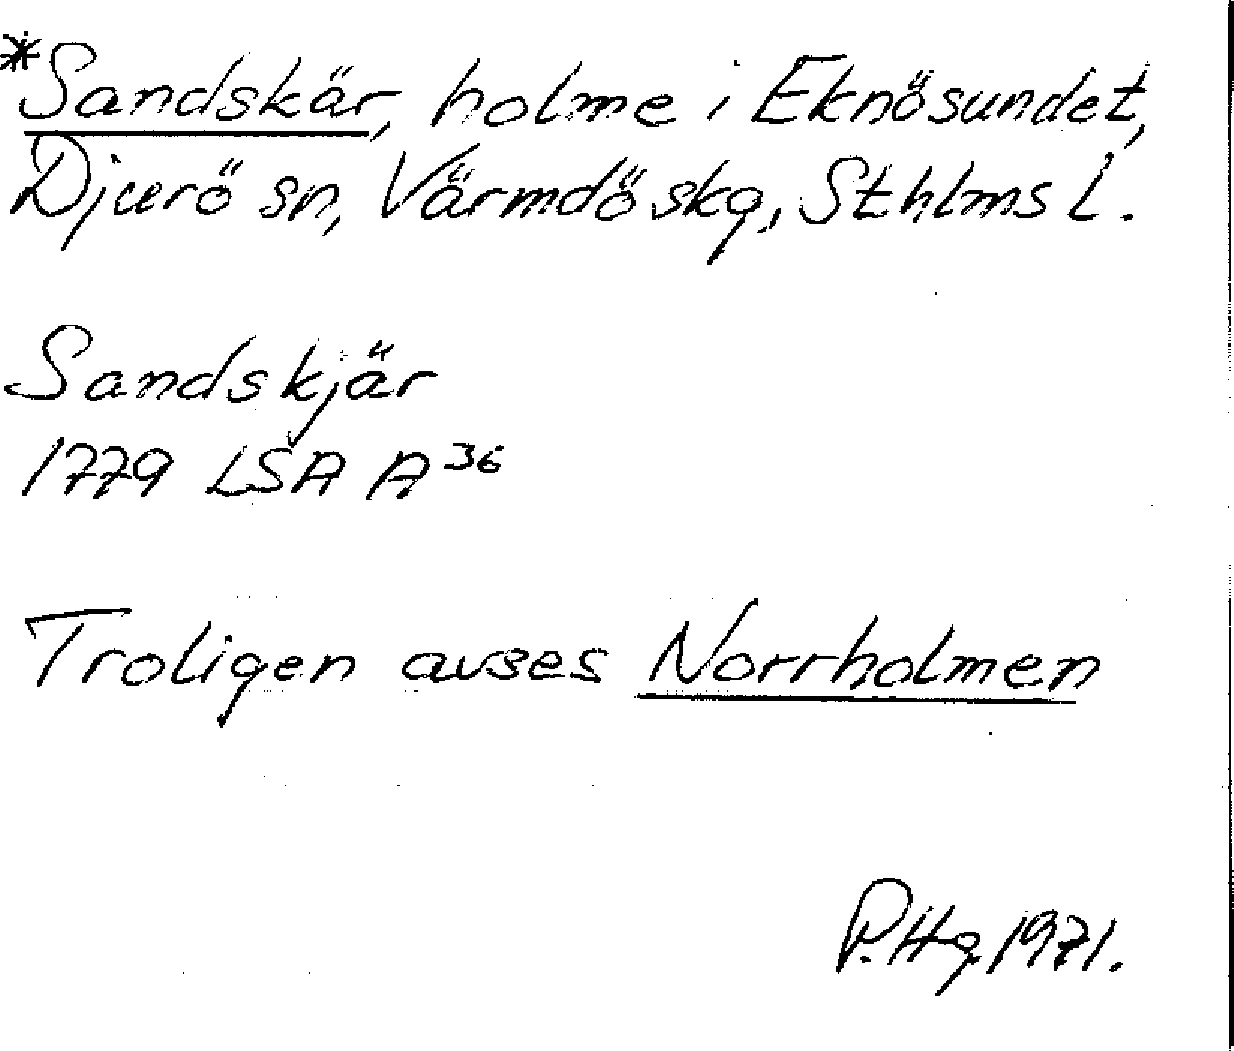 *Sandskär, holme i Eknösundet,
Djurö sn, Värmdö skg, Sthlms l.
Sandskjär
1779 LSA A³⁶
Troligen avses Norrholmen
P.Hg. 1971.